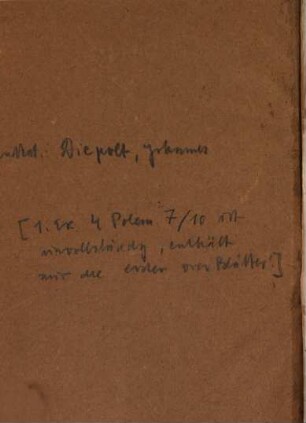 Diepolt, Johannes
[1. Ex. 4 Polem. 7/10 ist
unvollständig, enthält
nur die ersten vier Blätter.]